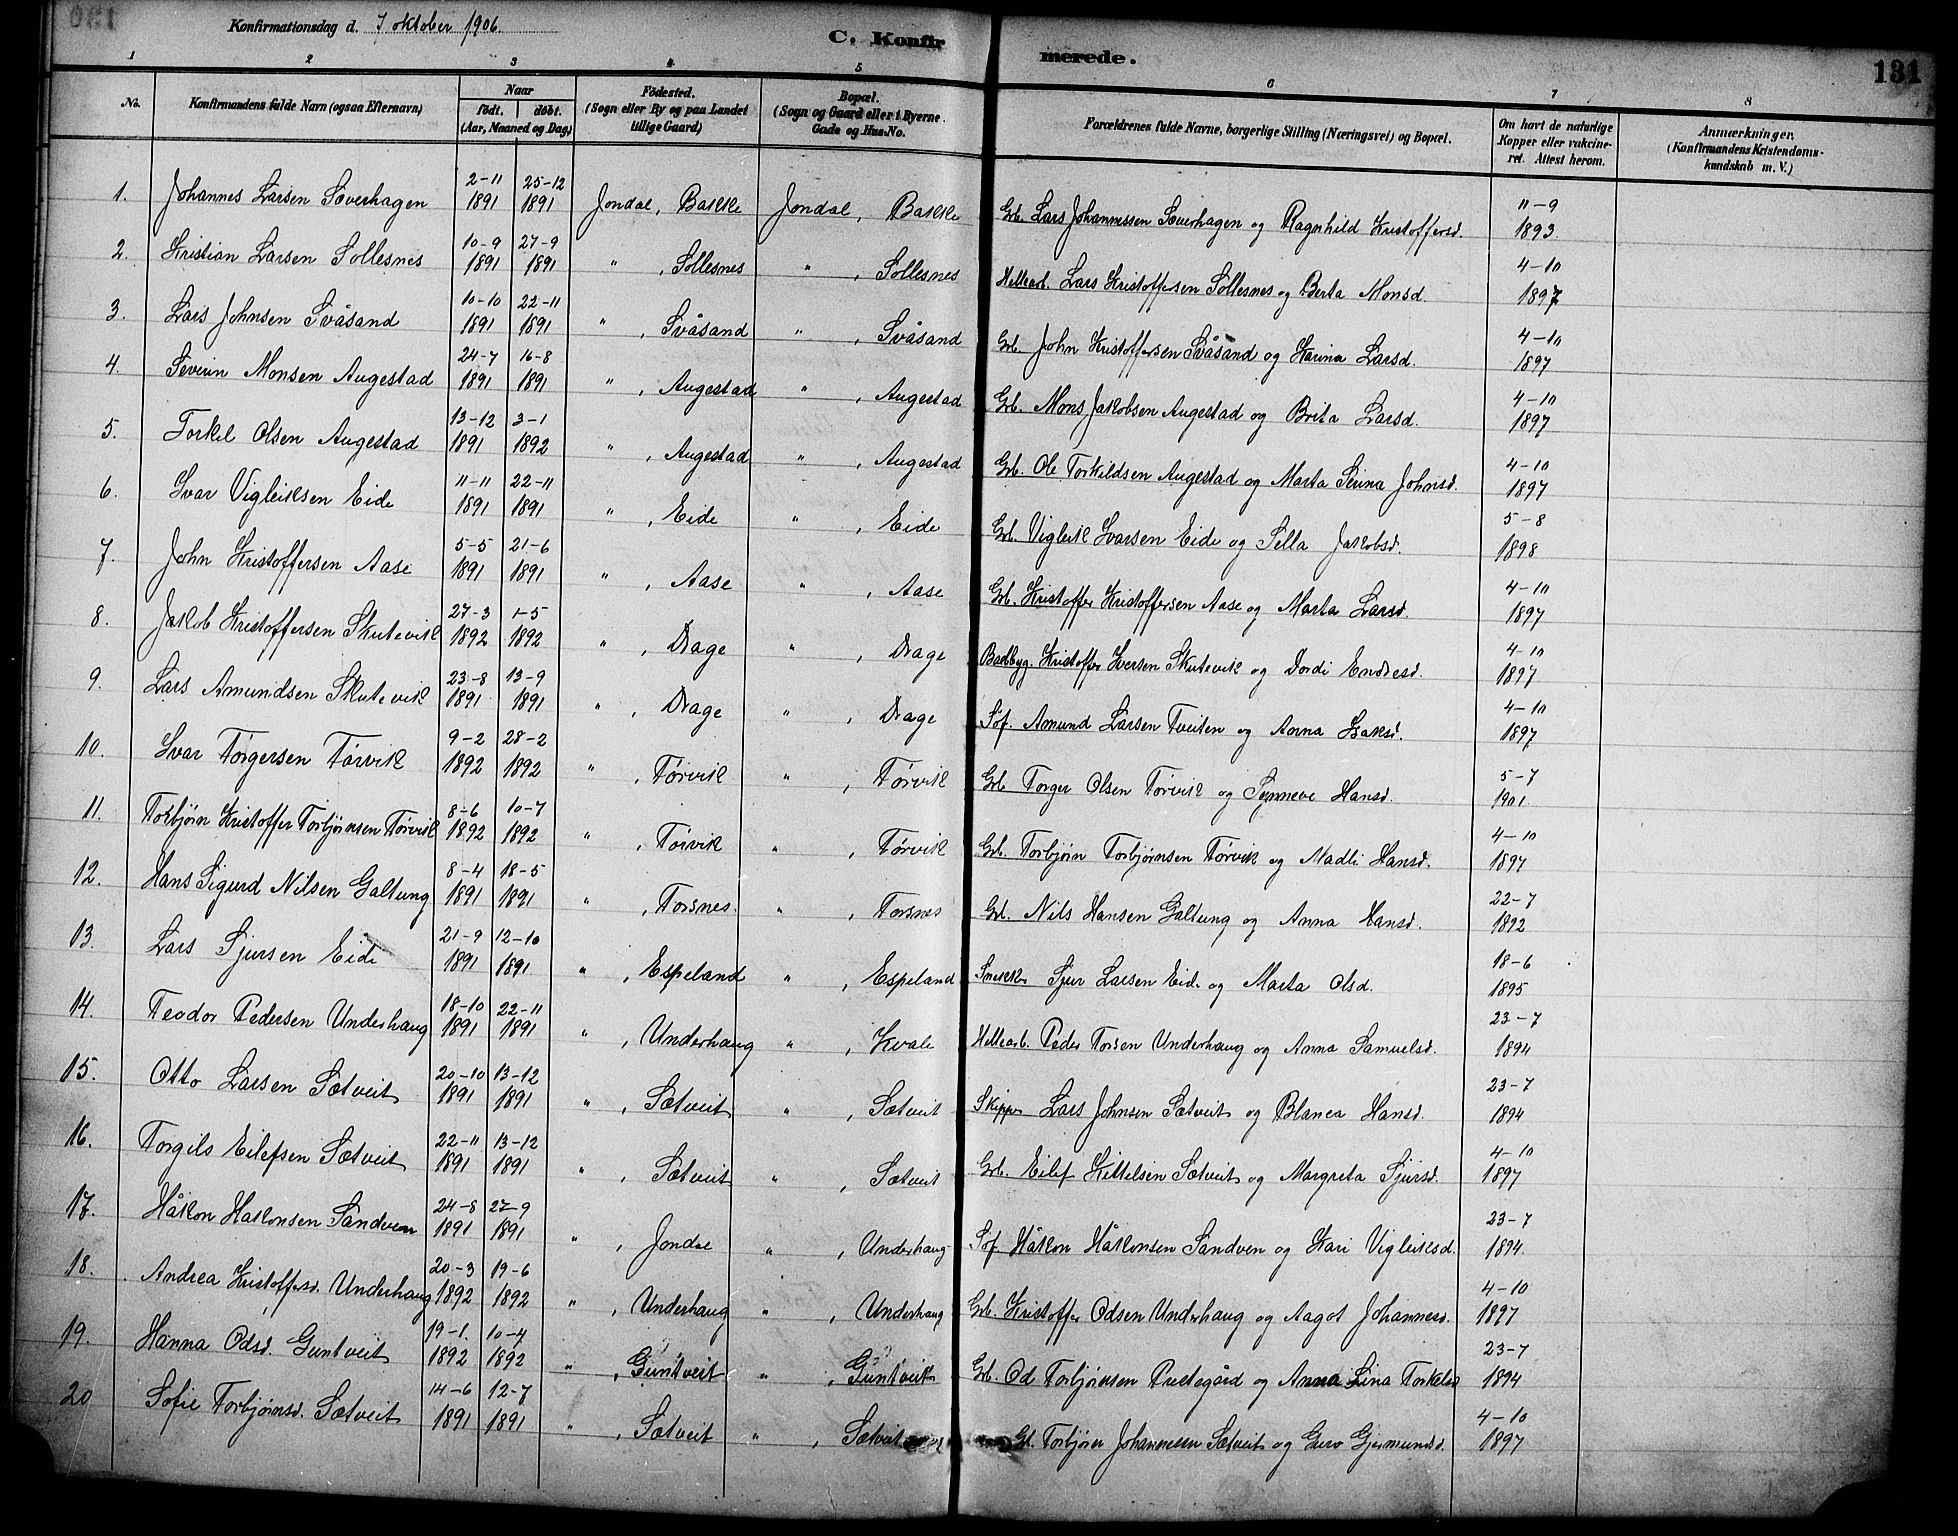 Konfirmationsdag d. 7 oktober 1906.
C. Konfirmerede.
131
1 2 3 4 5 6 7 8
No. Konfirmandens fulde Navn (ogsaa Efternavn) Naar født. døbt. (Aar, Maaned og Dag.) Fødested. (Sogn eller By og paa Landet tillige Gaard) Bopæl. (Sogn og Gaard eller i Byerne Gade og Hus-No. Forældrenes fulde Navne, borgerlige Stilling (Næringsvei) og Bopæl. Om havt de naturlige Kopper eller vakcineret. Attest herom. Anmærkninger. (Konfirmandens Kristendomskundskab m. V.)
1. Johannes Larsen Sæverhagen 2-11 1891 25-12 1891 Jondal, Bakke Jondal, Bakke Grb. Lars Johannessen Sæverhagen og Ragnhild Kristoffersd. 11-9 1893.
2. Kristian Larsen Sollesnes 10-9 1891 27-9 1891 " , Sollesnes " , Sollesnes Hellearb. Lars Kristoffersen Sollesnes og Berta Monsd. 4-10 1897
3. Lars Johnsen Svåsand 10-10 1891 22-11 1891 " , Svåsand " , Svåsand Grb. John Kristoffersen Svåsand og Karina Larsd. 4-10 1897
4. Severin Monsen Augestad 24-7 1891 16-8 1891 " , Augestad " , Augestad Grb. Mons Jakobsen Augestad og Brita Larsd. 4-10 1897
5. Torkel Olsen Augestad 13-12 1891 3-1 1892 " , Augestad " , Augestad Grb. Ole Torkildsen Augestad og Marta Serina Johnsd. 4-10 1897
6. Ivar Vigleiksen Eide 11-11 1891 22-11 1891 " , Eide " , Eide Grb. Vigleik Ivarsen Eide og Sella Jakobsd. 5-8 1898
7. John Kristoffersen Aase 5-5 1891 21-6 1891 " , Aase " , Aase Grb. Kristoffer Kristoffersen Aase og Marta Larsd. 4-10 1897
8. Jakob Kristoffersen Skutevik 27-3 1892 1-5 1892 " , Drage " , Drage Baadbyg. Kristoffer Iversen Skutevik og Dordi Endresd. 4-10 1897
9. Lars Amundsen Skutevik 23-8 1891 13-9 1891 " , Drage " , Drage Søf. Amund Larsen Tveiten og Anna Isaksd. 4-10 1897
10. Ivar Torgersen Tørvik 9-2 1892 28-2 1892 " , Tørvik " , Tørvik Grb. Torger Olsen Tørvik og Synneve Hansd. 5-7 1901.
11. Torbjørn Kristoffer Torbjørnsen Tørvik 8-6 1892 10-7 1892 " , Tørvik " , Tørvik Grb. Torbjørn Torbjørnsen Tørvik og Madli Hansd. 4-10 1897
12. Hans Sigurd Nilsen Galtung 8-4 1891 18-5 1891 " , Torsnes. " , Torsnes Grb. Nils Hansen Galtung og Anna Hansd. 22-7 1892
13. Lars Sjursen Eide 21-9 1891 12-10 1891 " , Espeland " , Espeland Snekker Sjur Larsen Eide og Marta Olsd. 18-6 1895
14. Teodor Pedersen Underhaug 18-10 1891 22-11 1891 " , Underhaug " , Kvale Hellearb. Peder Torsen Underhaug og Anna Samuelsd. 23-7 1894
15. Otto Larsen Sætveit 20-10 1891 13-12 1891 " , Sætveit " , Sætveit Skipper Lars Johnsen Sætveit og Blanca Hansd. 23-7 1894
16. Torgils Eilefsen Sætveit 22-11 1891 13-12 1891 " , Sætveit " , Sætveit Grb. Eilef Kittelsen Sætveit og Margreta Sjursd. 4-10 1897
17. Håkon Hakonsen Sandven 24-8 1891 27-9 1891 " , Jondal " , Underhaug Søf. Håkon Håkonsen Sandven og Kari Vigleiksd. 23-7 1894.
18. Andrea Kristoffersd. Underhaug 20-3 1892 19-6 1892 " , Underhaug " , Underhaug Grb. Kristoffer Odsen Underhaug og Aagot Johannesd. 4-10 1897
19. Hanna Odsd. Guntveit 19-1. 1892 10-4 1892 " , Guntveit " , Guntveit Grb. Od Torbjørnsen Prestegård og Anna Lina Torkelsd 23-7 1894
20 Sofie Torbjørnsd. Sætveit 14-6 1891 12-7 1891 " , Sætveit " , Sætveit Grb. Torbjørn Johannessen Sætveit og Guro Gjermundsd. 4-10 1897